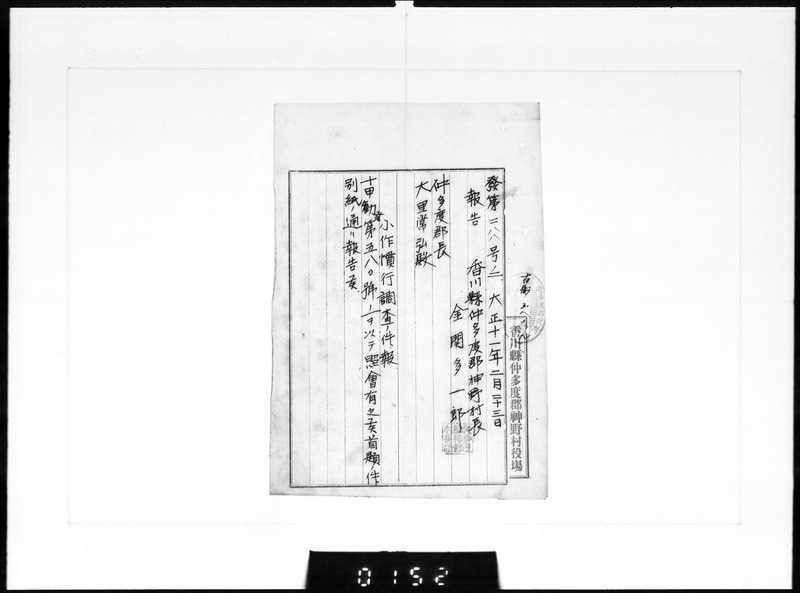 發第二二八号ノ二 大正十一年二月二十三日
報告
香川縣仲多度郡神野村長
金関多一郎
仲多度郡長
大里常弘殿
小作慣行調査ノ件報
十甲勧第五八〇號ノ一ヲ以テ照會有之候首題ノ件
別紙ノ通リ報告候
香川縣仲多度郡神野村役場
0152